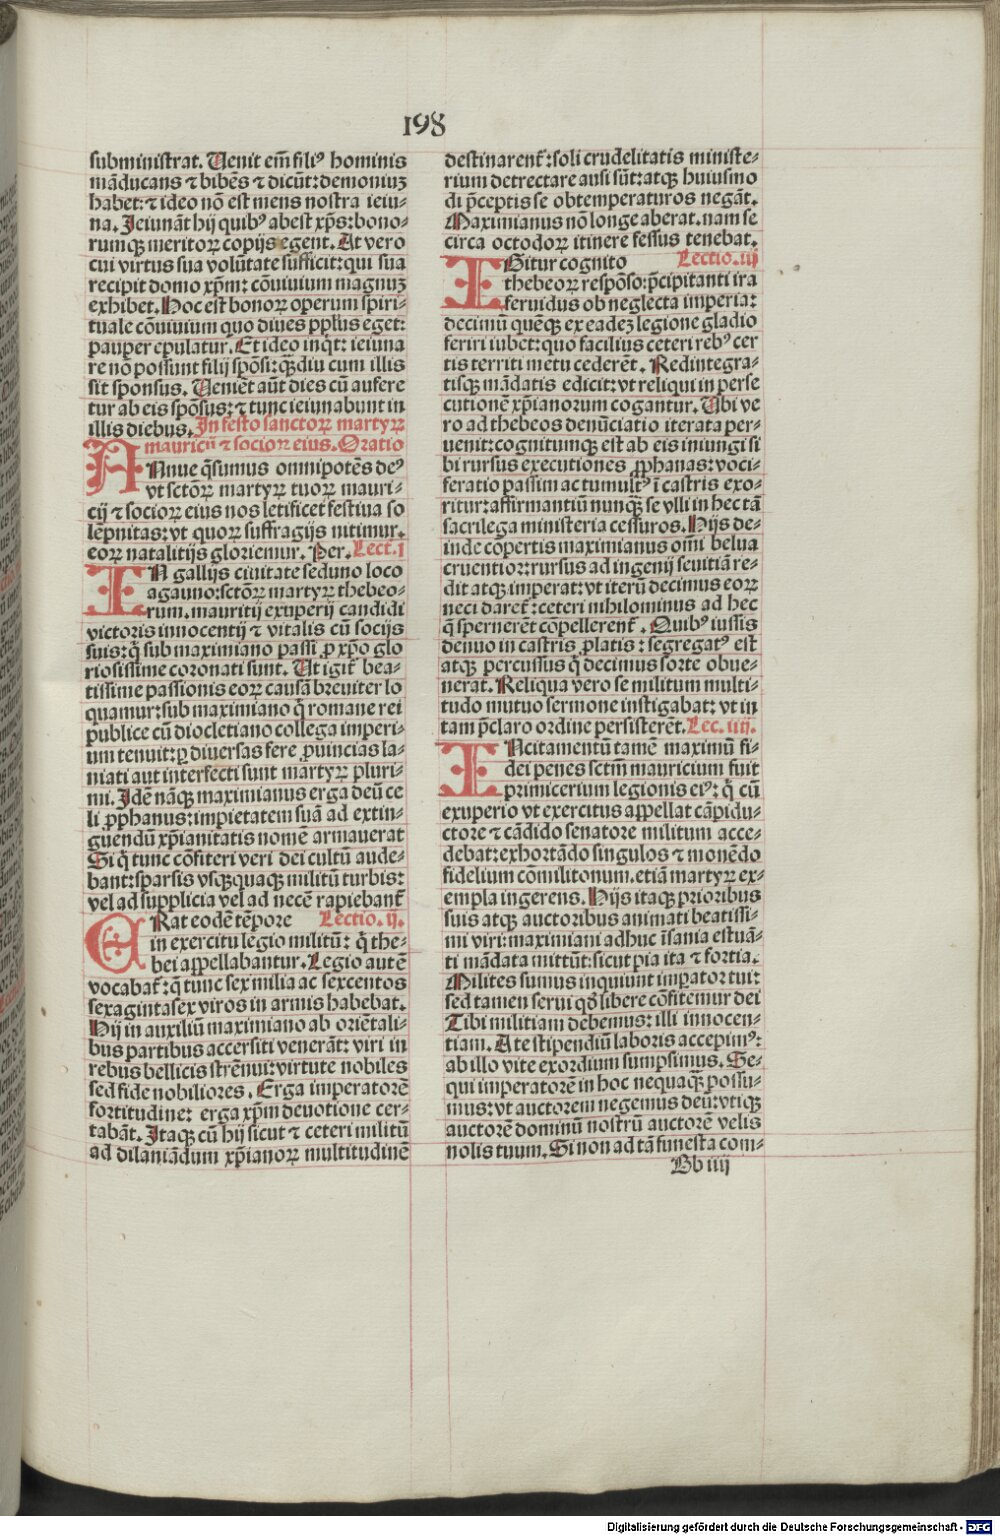 198
subministrat. Uenit em̄ filiꝰ hominis
mādu​cans ⁊ bibēs ⁊ dicūt: demoniuȝ
habet: ⁊ ideo nō est mens nostra ieiu-
na. Jeiunāt hij quibꝰ abest xp̄s: bono-
rumqꝫ meritoꝝ copijs egent. At vero
cui virtus sua volūtate sufficit: qui sua
recipit domo xp̄m: cōuiuium magnuȝ
exhibet. Hoc est bonoꝝ operum spiri-
tuale cōuiuium quo diues pp̄lus eget:
pauper epulatur. Et ideo inq̄t: ieiuna
re nō possunt filij spōsi: qꝫ̄diu cum illis
sit sponsus. Ueniēt aūt dies cū aufere
tur ab eis spōsus: ⁊ tunc ieiunabunt in
illis diebus. In festo sanctoꝝ martyꝝ
mauricū ⁊ socioꝝ eius. Oratio
ANnue q̄sumus omnipotēs deꝰ
vt sctōꝝ martyꝝ tuoꝝ mauri-
cij ⁊ socioꝝ eius nos letificet festiua so
lēpnitas: vt quoꝝ suffragijs nitimur.
eoꝝ natalitijs gloriemur. Per. Lect. i
IN gallijs ciuitate seduno loco
agauno: sctōꝝ martyꝝ thebeo-
rum. mauritij exuperij candidi
victoris innocentij ⁊ vitalis cū socijs
suis: q̄ sub maximiano passi ꝓ xp̄o glo
riosissime coronati sunt. Ut igit̄ bea-
tissime passionis eoꝝ causā breuiter lo
quamur: sub maximiano q̄ romane rei
publice cū diocletiano collega imperi-
um tenuit: ꝑ diuersas fere ꝓuincias la-
niati aut interfecti sunt martyꝝ pluri-
mi. Jdē nāqꝫ maximianus erga deū ce
li ꝓphanus: impietatem suā ad extin-
guendū xp̄ianitatis nomē armauerat
Si q̄ tunc cōfiteri veri dei cultū aude-
bant: sparsis vsqꝫquaqꝫ militū turbis:
vel ad supplicia vel ad necē rapiebant̄
ERat eodē tēpore Lectio. ij.
in exercitu legio militū: q̄ the-
bei appellabantur. Legio autē
vocabat̄: q̄ tunc sex milia ac sexcentos
sexagintasex viros in armis habebat.
Hij in auxiliū maximiano ab oriētali-
bus partibus accersiti venerāt: viri in
rebus bellicis strēnui: virtute nobiles
sed fide nobiliores. Erga imperatorē
fortitudine: erga xp̄m deuotione cer-
tabāt. Jtaqꝫ cū hij sicut ⁊ ceteri militū
ad dilaniādum xp̄ianoꝝ multitudinē
destinarent̄: soli crudelitatis ministe-
rium detrectare ausi sūt: atqꝫ huiusmo
di p̄ceptis se obtemperaturos negāt.
Maximianus nō longe aberat. nam se
circa octodoꝝ itinere fessus tenebat.
IGitur cognito Lectio. iij
thebeoꝝ respōso: p̄cipitanti ira
feruidus ob neglecta imperia:
decimū quēqꝫ ex eadeȝ legione gladio
feriri iubet: quo facilius ceteri rebꝰ cer
tis territi metu cederēt. Redintegra-
tisqꝫ mādatis edicit: vt reliqui in perse
cutionē xp̄ianorum cogantur. Ubi ve
ro ad thebeos denūciatio iterata per-
uenit: cognitumqꝫ est ab eis iniungi si
bi rursus executiones ꝓphanas: voci-
feratio passim ac tumultꝰ ī castris exo-
ritur: affirmantiū nunqꝫ̄ se vlli in hec tā
sacrilega ministeria cessuros. Hijs de-
inde cōpertis maximianus om̄i belua
cruentior: rursus ad ingenij seuitiā re-
dit atqꝫ imperat: vt iterū decimus eoꝝ
neci daret̄: ceteri nihilominus ad hec
q̄ spernerēt cōpellerent̄. Quibꝰ iussis
denuo in castris ꝓlatis: segregatꝰ est
atqꝫ percussus q̄ decimus sorte obue-
nerat. Reliqua vero se militum multi-
tudo mutuo sermone instigabat: vt in
tam p̄claro ordine persisterēt. Lec. iiij.
INcitamentū tamē maximū fi-
dei penes sctm̄ mauricium fuit
primicerium legionis eiꝰ: q̄ cū
exuperio vt exercitus appellat cāpidu-
ctore ⁊ cādido senatore militum acce-
debat: exhortādo singulos ⁊ monēdo
fidelium cōmilitonum. etiā martyꝝ ex-
empla ingerens. Hijs itaqꝫ prioribus
suis atqꝫ auctoribus animati beatissi-
mi viri: maximiani adhuc īsania estuā-
ti mādata mittūt: sicut pia ita ⁊ fortia.
Milites sumus inquiunt imperator tui:
sed tamen serui qd̄ libere cōfitemur dei
Tibi militiam debemus: illi innocen-
tiam. A te stipendiū laboris accepimꝰ:
ab illo vite exordium sumpsimus. Se-
qui imperatorē in hoc nequaqꝫ̄ possu-
mus: vt auctorem negemus deū: vtiqꝫ
auctorē dominū nostrū auctorē velis
nolis tuum. Si non ad tā funesta com-
Bb iiij
Digitalisierung gefördert durch die Deutsche Forschungsgemeinschaft - DFG